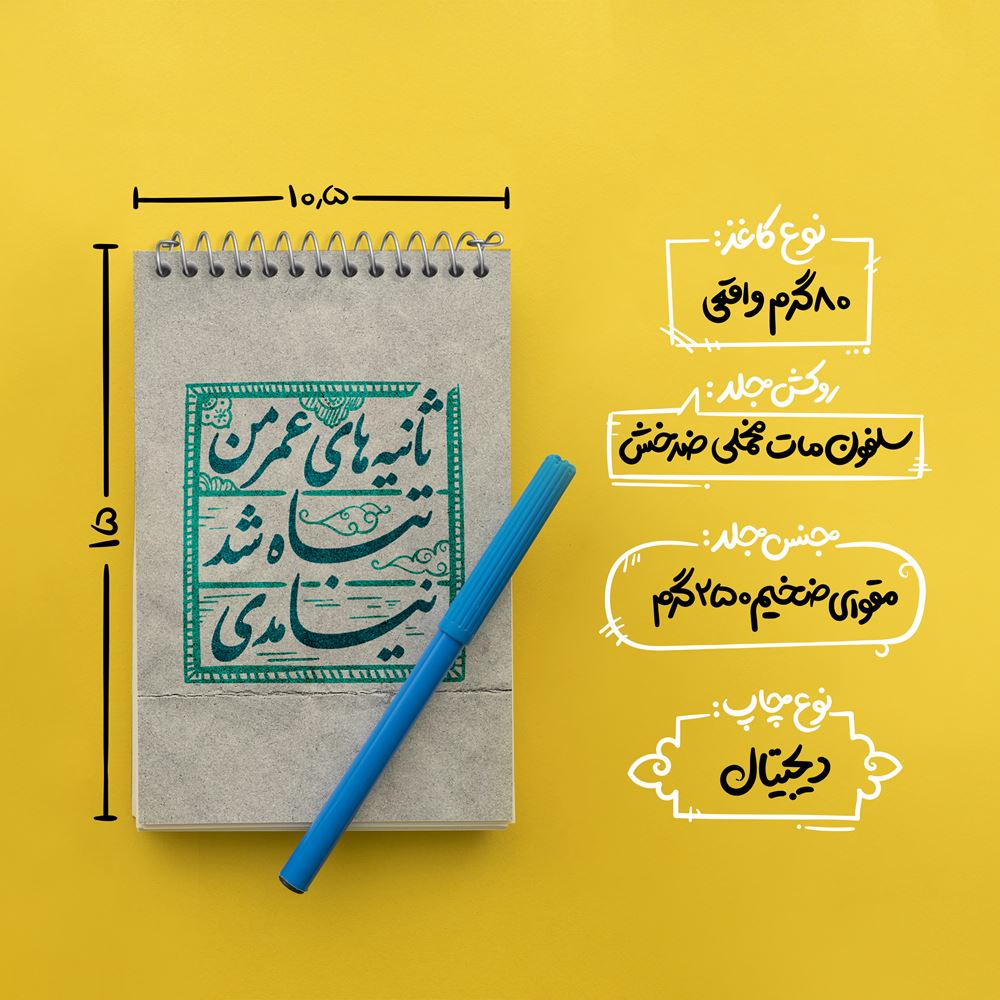 ۱۰٫۵
۱۵
ثانیه های عمر من
تباه شد
نیامدی
نوع کاغذ:
۸۰ گرم واقعی
روکش جلد:
سلفون مات مخملی ضدخش
جنس جلد:
مقوای ضخیم ۲۵۰ گرم
نوع چاپ:
دیجیتال